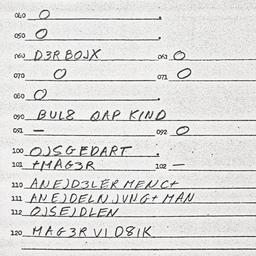 040 O
050 O
060 D3RBOJX 061 O
070 O 071 O
080 O
090 BUL8 OAP KIND
091 – 092 O
100 O)SGEDART
101 +MAG3R 102 –
110 ANE)D3LER MENC+
111 ANE)DELN.JVNG+ MAN
112 O)SE)DLEN
120 MAG3R VI D8IK